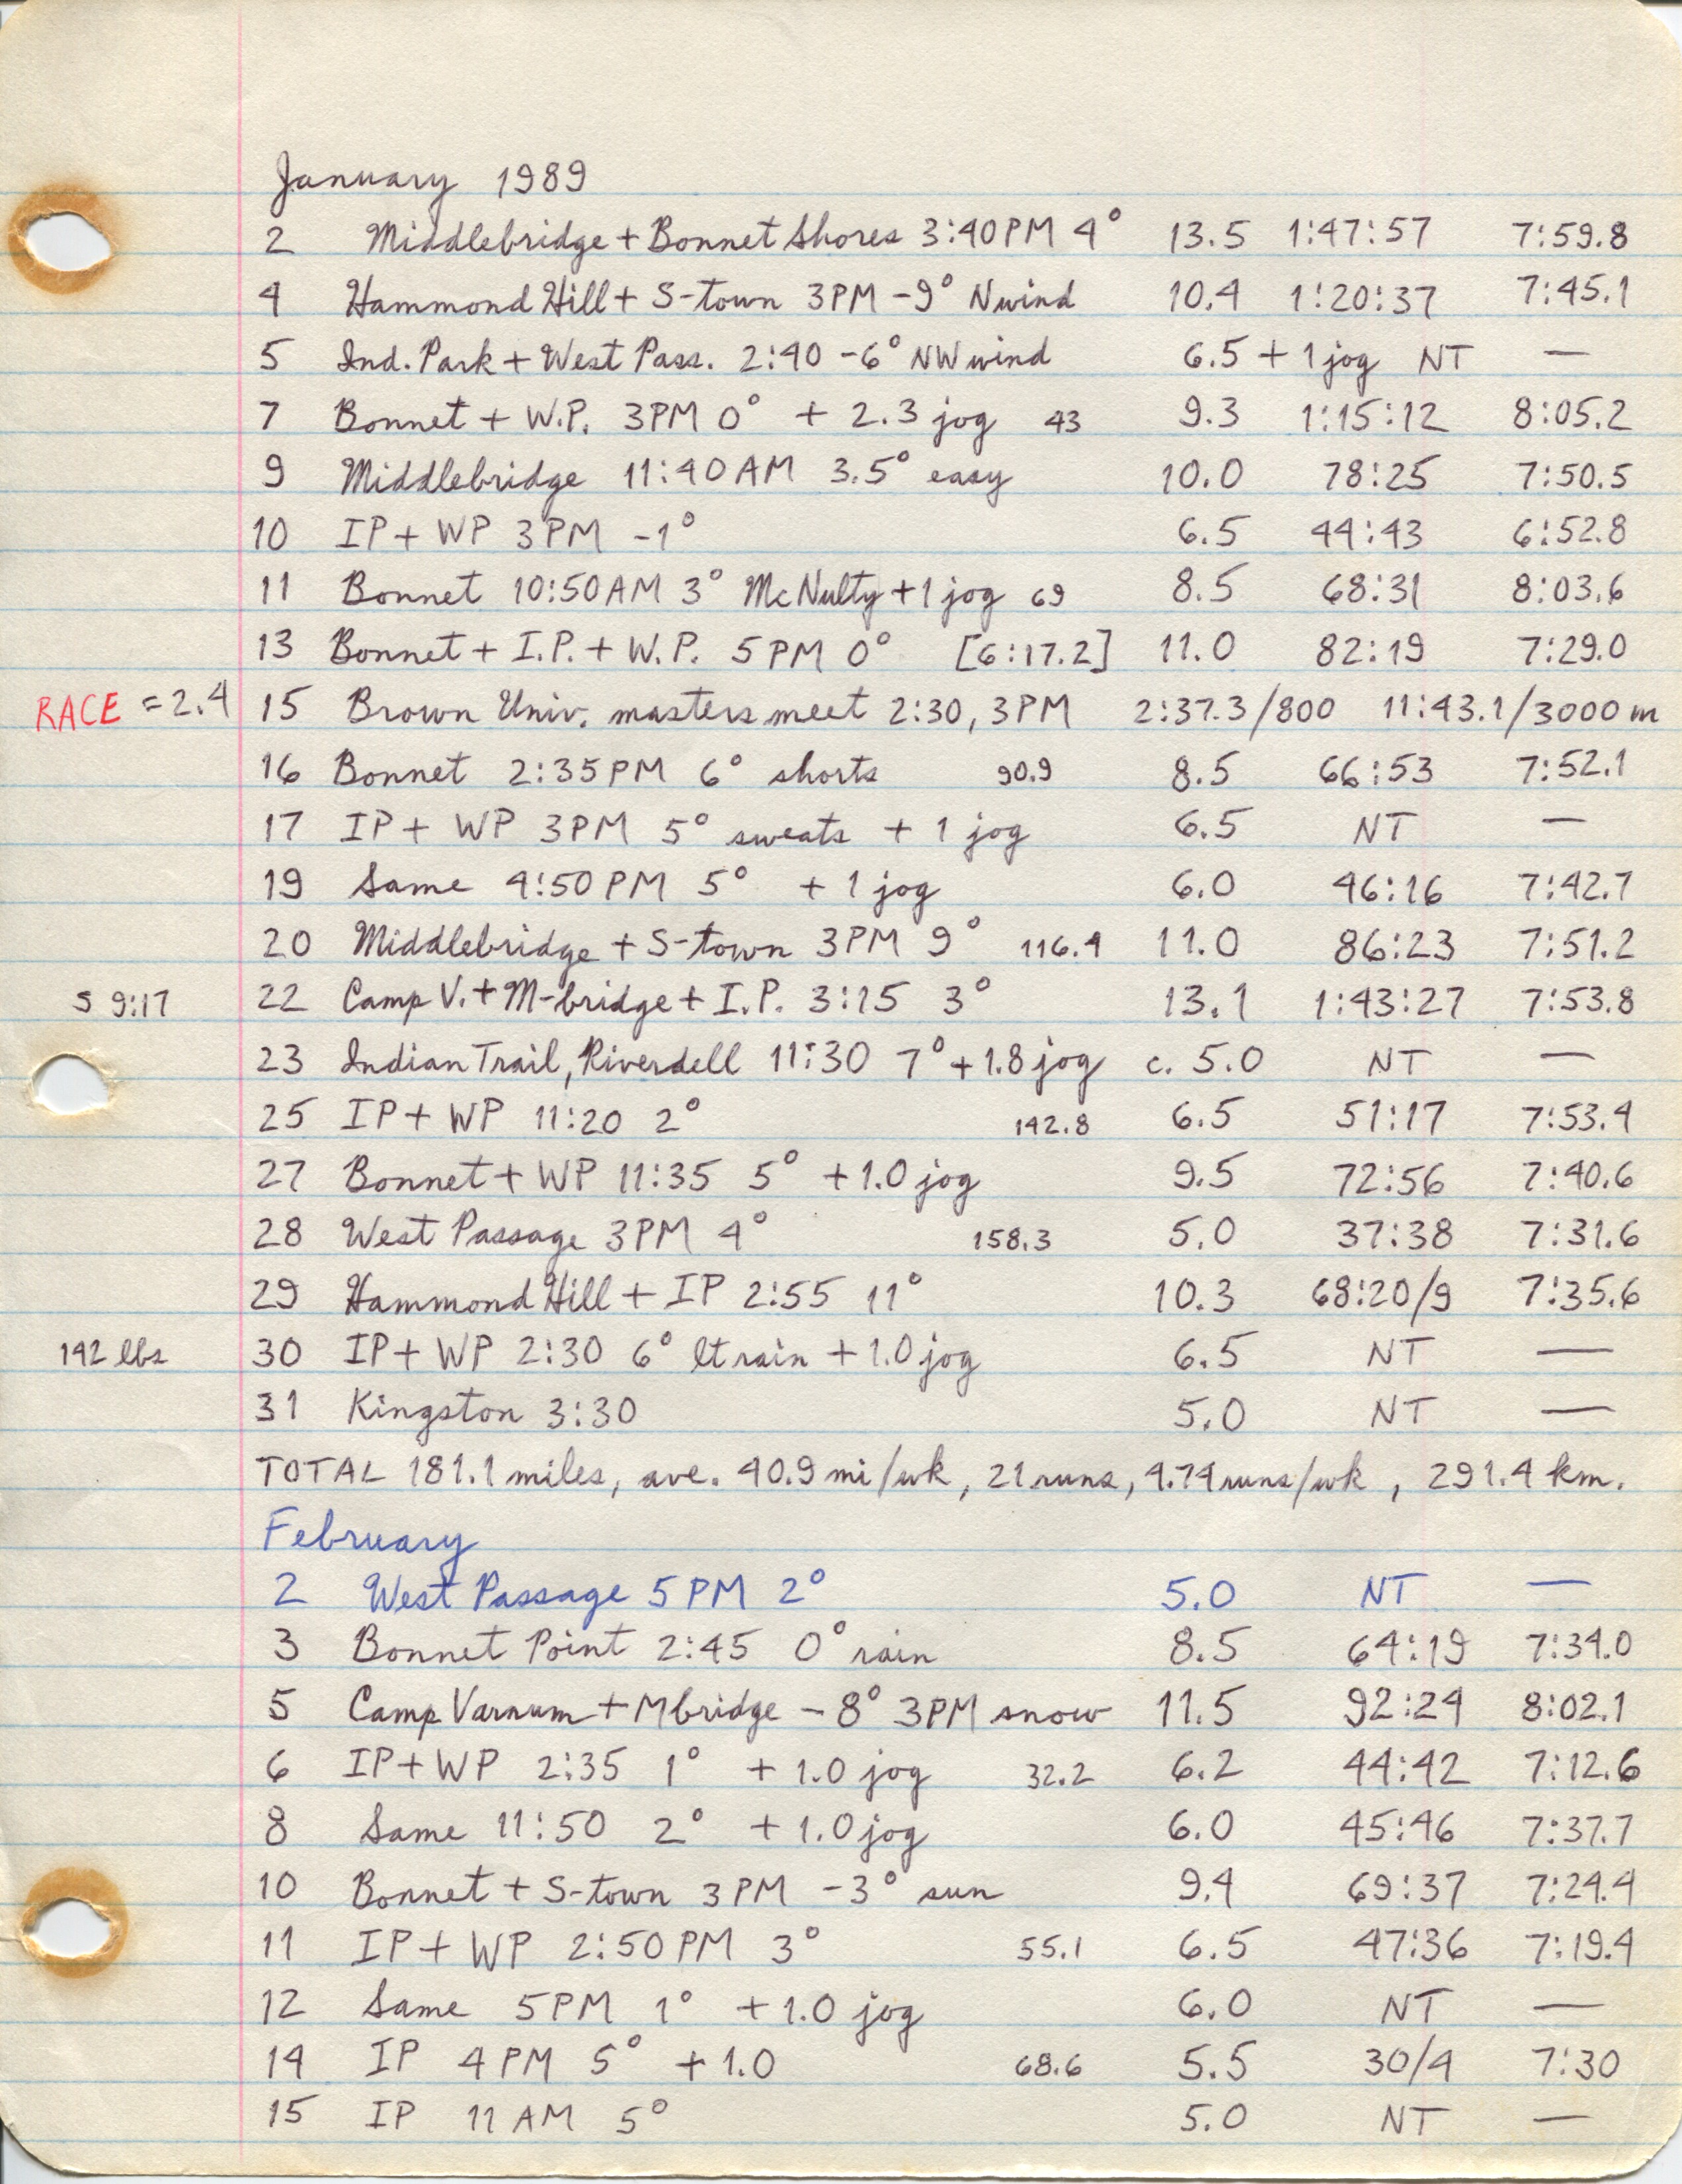 January 1989
2 Middlebridge + Bonnet Shores 3:40PM 4° 13.5 1:47:57 7:59.8
4 Hammond Hill + S-town 3PM -9° N wind 10.4 1:20:37 7:45.1
5 Ind. Park + West Pass. 2:40 -6° NW wind 6.5 + 1 jog NT —
7 Bonnet + W.P. 3PM 0° + 2.3 jog 43 9.3 1:15:12 8:05.2
9 Middlebridge 11:40AM 3.5° easy 10.0 78:25 7:50.5
10 IP + WP 3PM -1° 6.5 44:43 6:52.8
11 Bonnet 10:50AM 3° McNulty + 1 jog 69 8.5 68:31 8:03.6
13 Bonnet + I.P. + W.P. 5PM 0° [6:17.2] 11.0 82:19 7:29.0
RACE = 2.4 15 Brown Univ. masters meet 2:30, 3PM 2:37.3/800 11:43.1/3000 m
16 Bonnet 2:35PM 6° shorts 90.9 8.5 66:53 7:52.1
17 IP + WP 3PM 5° sweats + 1 jog 6.5 NT —
19 Same 4:50PM 5° + 1 jog 6.0 46:16 7:42.7
20 Middlebridge + S-town 3PM 9° 116.4 11.0 86:23 7:51.2
S 9:17 22 Camp V. + M-bridge + I.P. 3:15 3° 13.1 1:43:27 7:53.8
23 Indian Trail, Riverdell 11:30 7° + 1.8 jog c. 5.0 NT —
25 IP + WP 11:20 2° 142.8 6.5 51:17 7:53.4
27 Bonnet + WP 11:35 5° + 1.0 jog 9.5 72:56 7:40.6
28 West Passage 3PM 4° 158.3 5.0 37:38 7:31.6
29 Hammond Hill + IP 2:55 11° 10.3 68:20/9 7:35.6
142 lbs 30 IP + WP 2:30 6° lt rain + 1.0 jog 6.5 NT —
31 Kingston 3:30 5.0 NT —
TOTAL 181.1 miles, ave. 40.9 mi/wk, 21 runs, 4.74 runs/wk, 291.4 km.
February
2 West Passage 5PM 2° 5.0 NT —
3 Bonnet Point 2:45 0° rain 8.5 64:19 7:34.0
5 Camp Varnum + Mbridge -8° 3PM snow 11.5 92:24 8:02.1
6 IP + WP 2:35 1° + 1.0 jog 32.2 6.2 44:42 7:12.6
8 Same 11:50 2° + 1.0 jog 6.0 45:46 7:37.7
10 Bonnet + S-town 3PM -3° sun 9.4 69:37 7:24.4
11 IP + WP 2:50PM 3° 55.1 6.5 47:36 7:19.4
12 Same 5PM 1° + 1.0 jog 6.0 NT —
14 IP 4PM 5° + 1.0 68.6 5.5 30/4 7:30
15 IP 11AM 5° 5.0 NT —